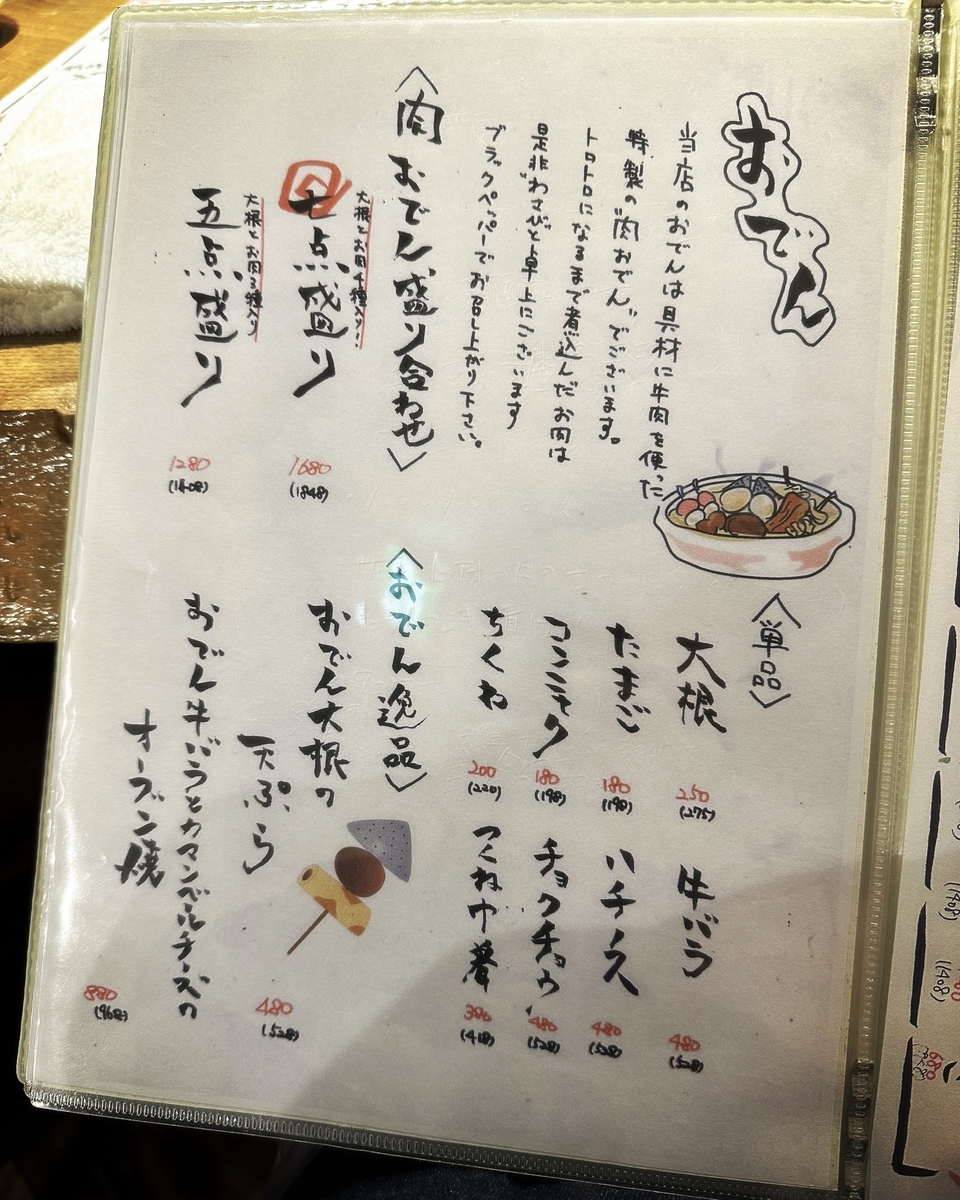 おでん
当店のおでんは具材に牛肉を使った
特製の"肉おでん"でございます。
トロトロになるまで煮込んだお肉は
是非わさびと卓上にございます
ブラックペッパーでお召し上がり下さい。
〈肉おでん盛り合わせ〉
大根とお肉4種入り!
七点盛り
1680
(1848)
大根とお肉3種入り
五点盛り
1280
(1408)
〈単品〉
大根
250
(275)
たまご
180
(198)
コンニャク
180
(198)
ちくわ
200
(220)
牛バラ
480
(528)
ハチノス
480
(528)
チョクチョウ
480
(528)
つくね巾着
380
(418)
〈おでん逸品〉
おでん大根の
天ぷら
480
(528)
おでん牛バラとカマンベールチーズの
オーブン焼
880
(968)
(1408)
(1408)
680